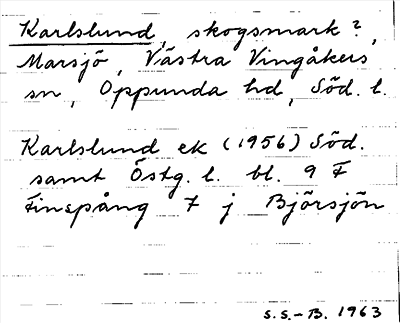 Karlslund, skogsmark?,
Marsjö, Västra Vingåkers
sn, Oppunda hd, Söd. l.
Karlslund ek (1956) Söd.
samt Östg. l. bl. 9 F
Finspång 7 j Björsjön
S.S.-B. 1963